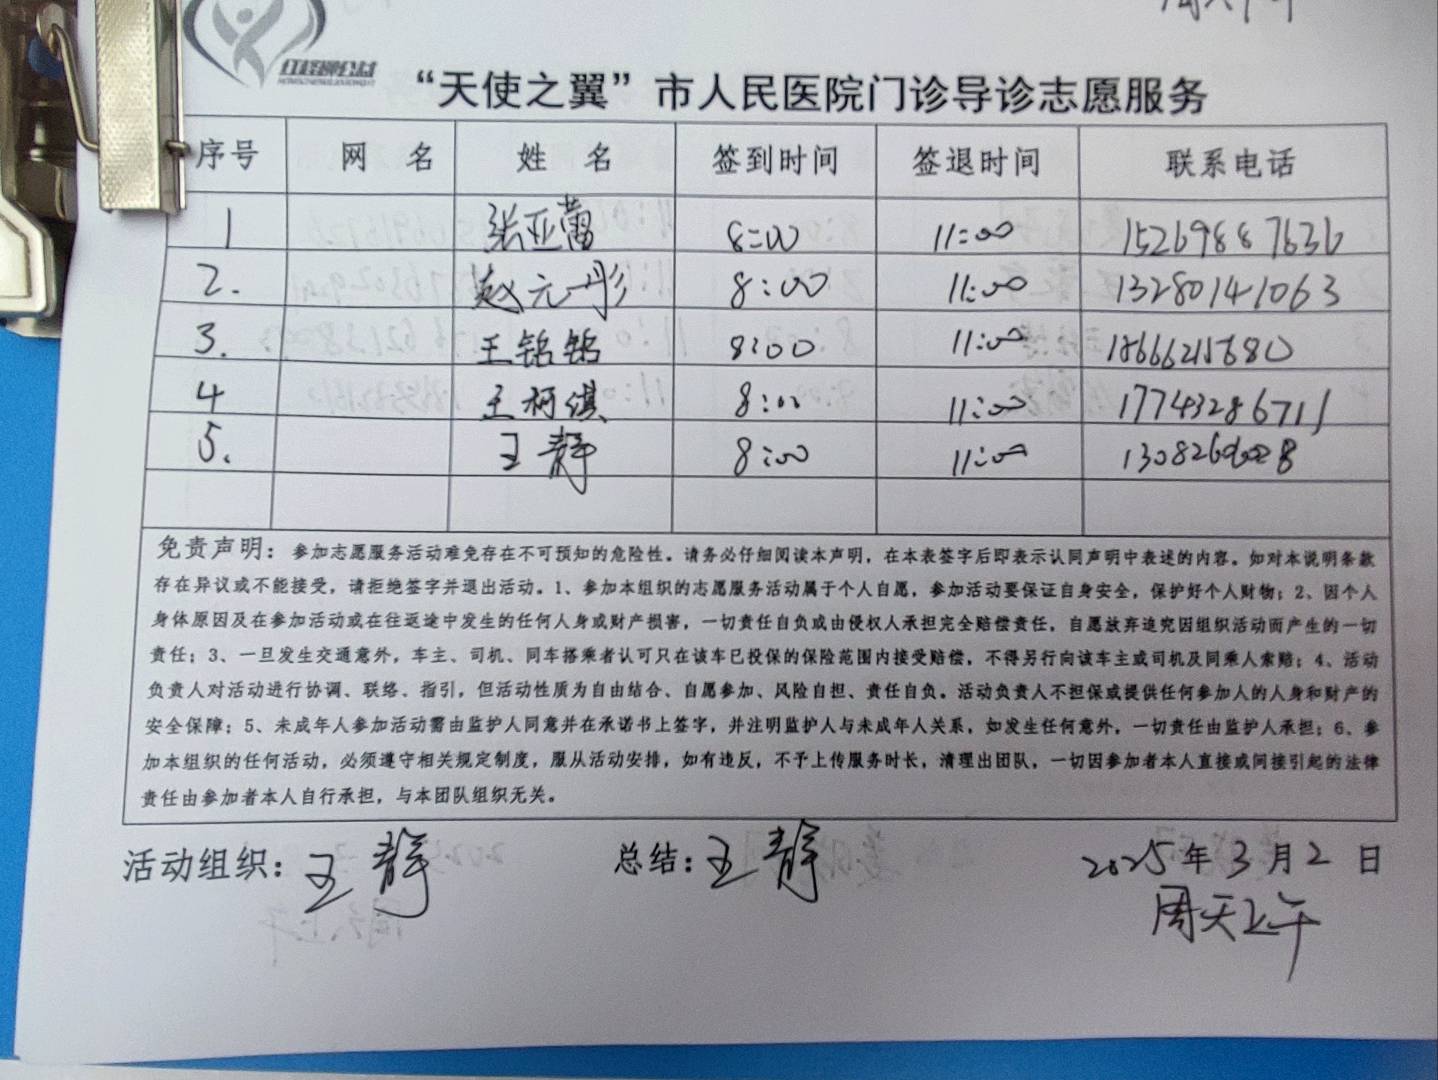 红橙柳公益
“天使之翼”市人民医院门诊导诊志愿服务
序号 网 名 姓 名 签到时间 签退时间 联系电话
1 张亚蕾 8:00 11:00 15269887636
2. 赵元彤 8:00 11:00 13280141063
3. 王铭铭 8:00 11:00 18666215680
4 王柯淇 8:00 11:00 17743286711
5. 王静 8:00 11:00
免责声明：参加志愿服务活动难免存在不可预知的危险性。请务必仔细阅读本声明，在本表签字后即表示认同声明中表述的内容。如对本说明条款
存在异议或不能接受，请拒绝签字并退出活动。1、参加本组织的志愿服务活动属于个人自愿，参加活动要保证自身安全，保护好个人财物；2、因个人
身体原因及在参加活动或在往返途中发生的任何人身或财产损害，一切责任自负或由侵权人承担完全赔偿责任，自愿放弃追究因组织活动而产生的一切
责任；3、一旦发生交通意外，车主、司机、同车搭乘者认可只在该车已投保的保险范围内接受赔偿，不得另行向该车主或司机及同乘人索赔；4、活动
负责人对活动进行协调、联络、指引，但活动性质为自由结合、自愿参加、风险自担、责任自负。活动负责人不担保或提供任何参加人的人身和财产的
安全保障；5、未成年人参加活动需由监护人同意并在承诺书上签字，并注明监护人与未成年人关系，如发生任何意外，一切责任由监护人承担；6、参
加本组织的任何活动，必须遵守相关规定制度，服从活动安排，如有违反，不予上传服务时长，清理出团队，一切因参加者本人直接或间接引起的法律
责任由参加者本人自行承担，与本团队组织无关。
活动组织：王静 总结：王静 2025年3月2日
周天上午